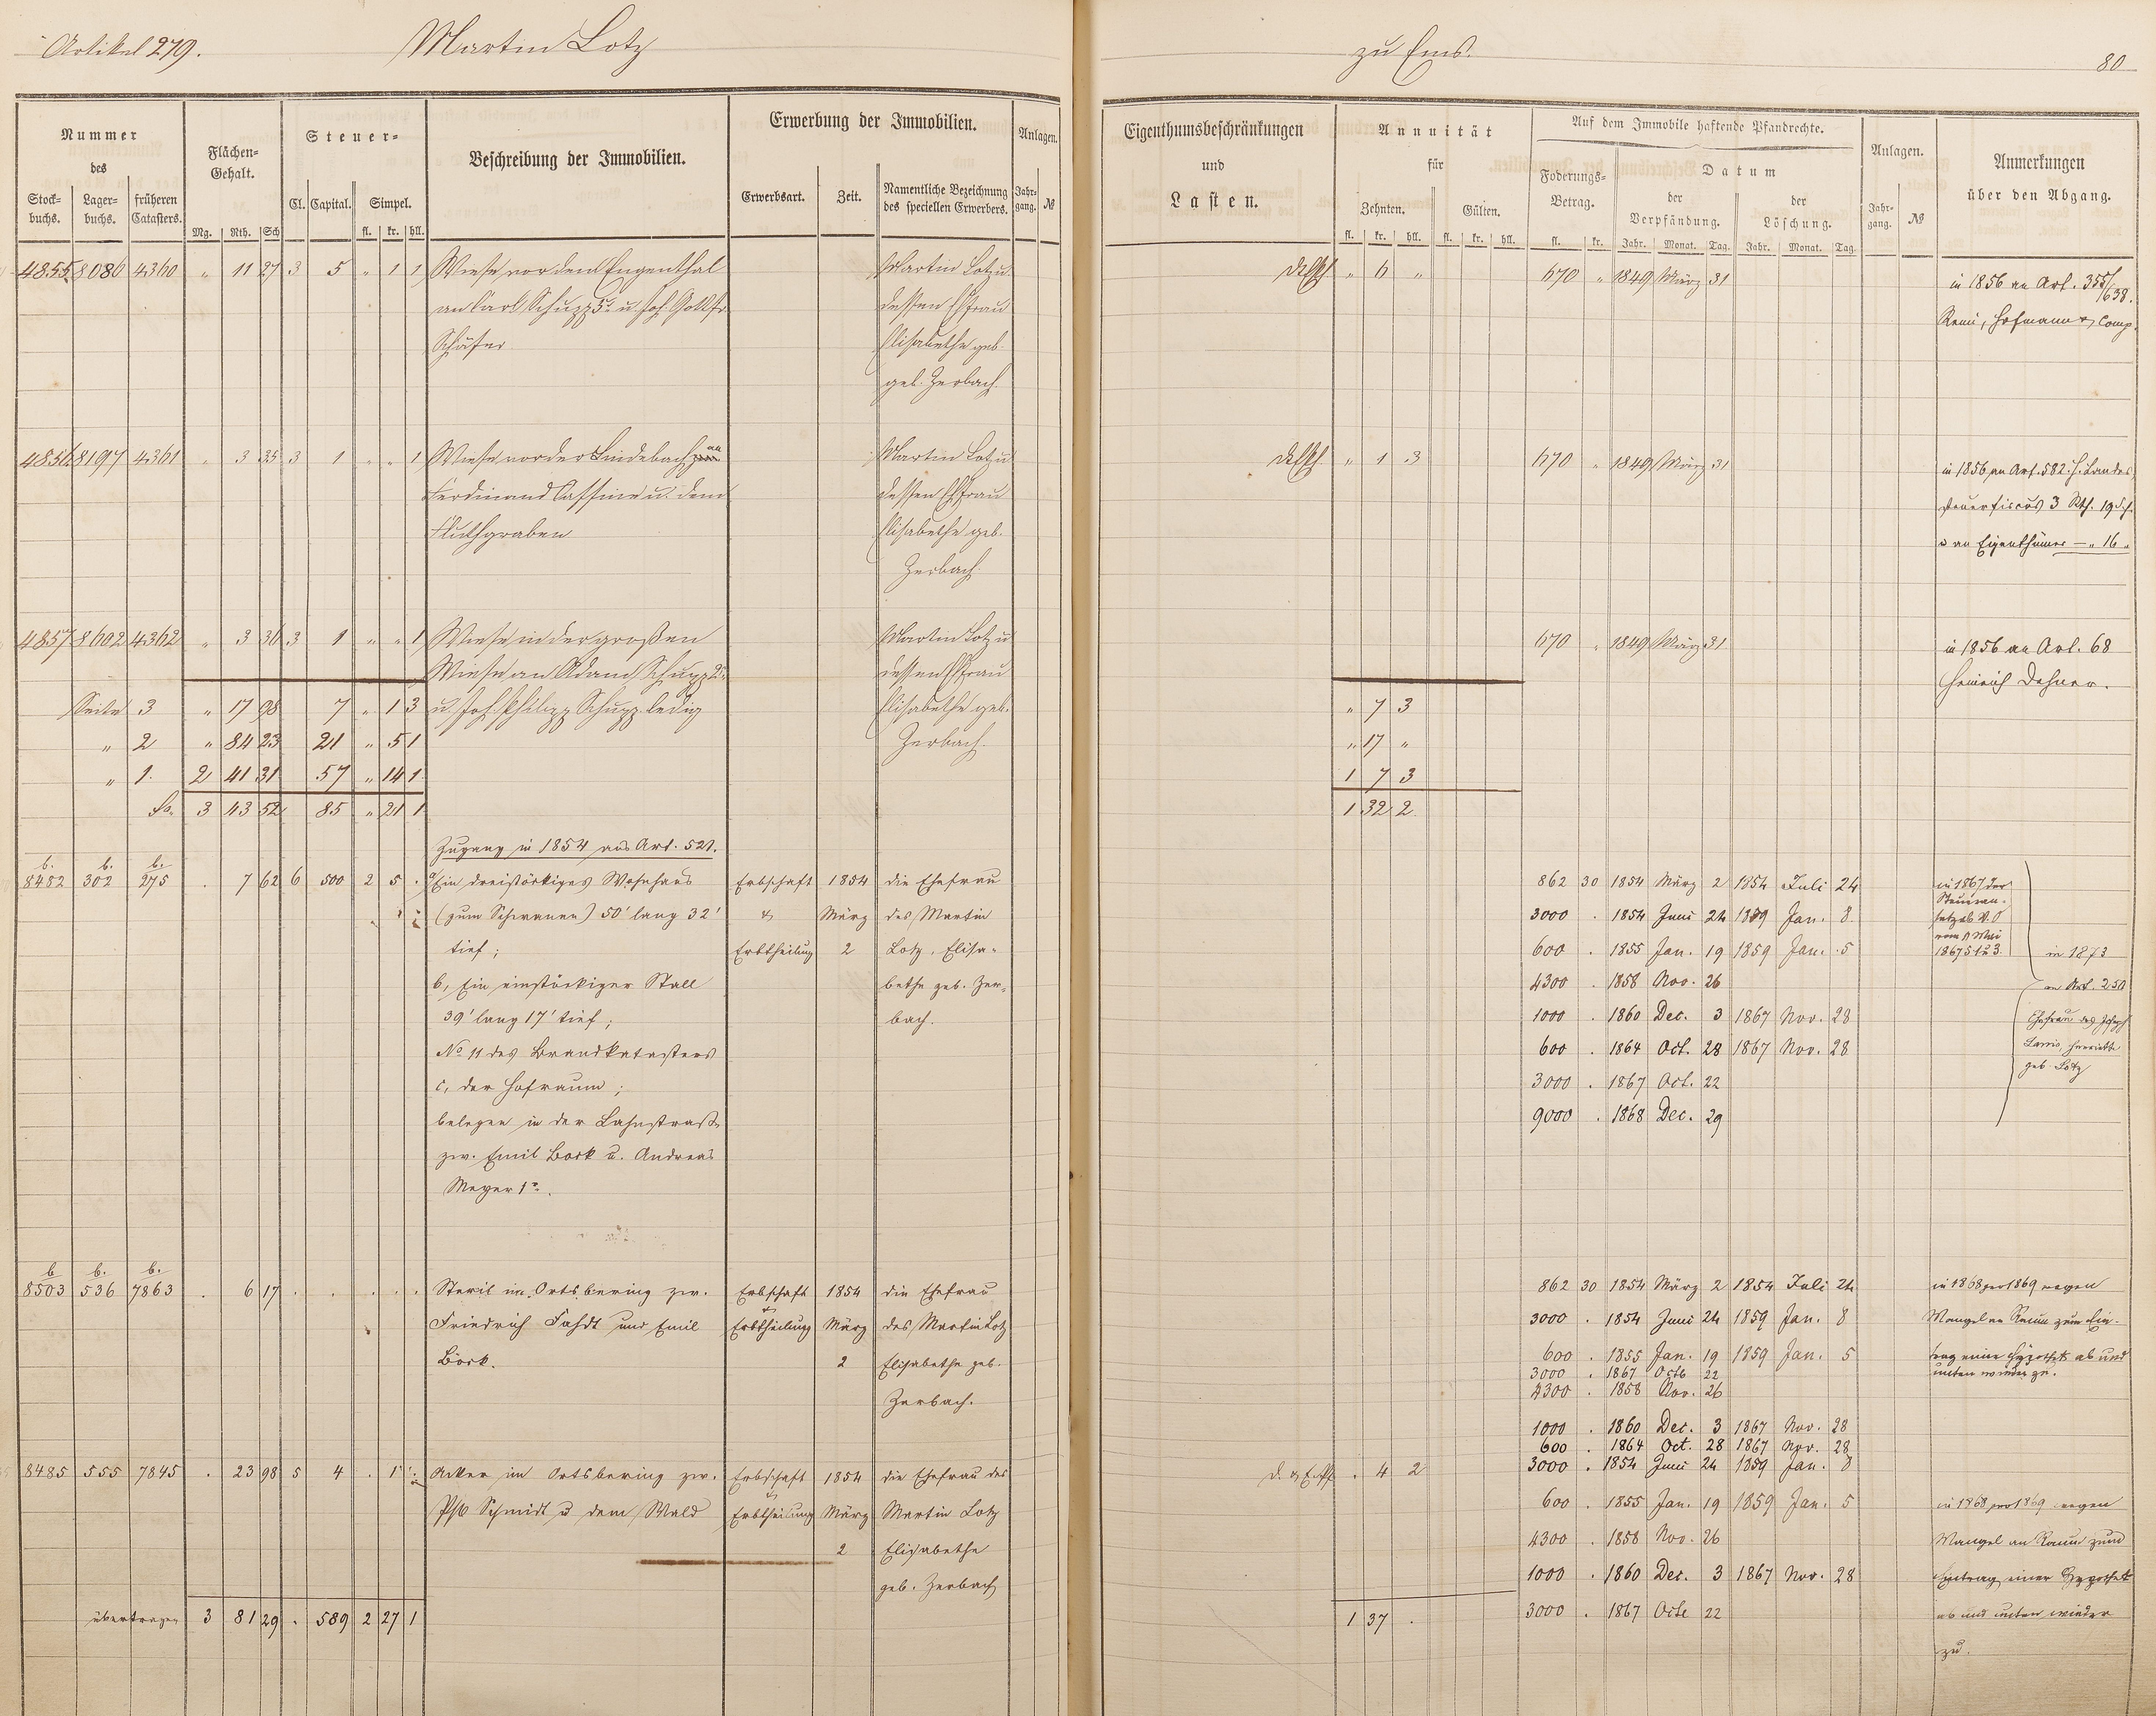 Artikel 279. Martin Lotz zu Ems. 80
Nummer des
Stock-buchs. Lager-buchs. früheren Catasters.
Flächen-Gehalt.
Mg. Rth. Sch
Steuer-
Cl. Capital. Simpel.
fl. kr. hll.
Beschreibung der Immobilien.
Erwerbung der Immobilien.
Erwerbsart. Zeit. Namentliche Bezeichnung des speciellen Erwerbers.
Anlagen.
Jahr-gang. №
Eigenthumsbeschränkungen
und
Lasten.
Annuität
für
Zehnten. Gülten.
fl. kr. hll. fl. kr. hll.
Auf dem Immobile haftende Pfandrechte.
Foderungs-Betrag.
fl. kr.
Datum
der Verpfändung. der Löschung.
Jahr. Monat. Tag. Jahr. Monat. Tag.
Anlagen.
Jahr-gang. №
Anmerkungen
über den Abgang.
4855 8086 4360 " 11 27 3 5 " 1 1 Wiese vor dem Engenthal Martin Lotz u. " 6 " 670 " 1849 März 31 in 1856 an Art. 355/638.
an Carl Schupp 5r u. Joh. Gottfr. dessen Ehefrau Remi, Hofmann & Comp.
Schäfer Elisabethe geb.
geb. Zerbach.
4856 8197 4361 " 3 35 3 1 " " 1 Wiese vor der Lindebach an Martin Lotz u " 1 3 670 " 1849 März 31 in 1856 an Art. 582. H. Landes
Ferdinand Cassine u. dem dessen Ehefrau steuerfiscus 3 Rth. 19 Sch.
Fluthgraben Elisabethe geb. u an Eigenthümer — " 16 "
Zerbach.
4857 8602 4362 " 3 36 3 1 " " 1 Wiese in der großen Martin Lotz u 670 " 1849 März 31 in 1856 an Art. 68
Wiese an Adam Schupp 2r dessen Ehefrau Heinrich Dehner.
Seite 3 " 17 98 7 " 1 3 u. Joh. Philipp Schupp ledig Elisabethe geb. " 7 3
" 2 " 84 23 21 " 5 1 Zerbach. " 17 "
" 1. 2 41 31 57 " 14 1 1 7 3
Sa. 3 43 52 85 " 21 1 1 32 2
Zugang in 1854 aus Art. 521.
b. b. b.
8482 302 275 . 7 62 6 500 2 5 . a, Ein dreistöckiges Wohnhaus Erbschaft 1854 die Ehefrau 862 30 1854 März 2 1854 Juli 24 in 1867 der
(zum Schwanen) 50' lang 32' & März des Martin 3000 . 1854 Juni 24 1859 Jan. 8
tief; Erbtheilung 2 Lotz, Elisa- 600 . 1855 Jan. 19 1859 Jan. 5 in 1873
b, Ein einstöckiger Stall bethe geb. Zer- 4300 . 1858 Nov. 26 an Art. 250
39' lang 17' tief; bach. 1000 . 1860 Dec. 3 1867 Nov. 28 Ehefrau des Joseph
No 11 des Brandkatasters 600 . 1864 Oct. 28 1867 Nov. 28 Henriette
c, der Hofraum; 3000 . 1867 Oct. 22 geb. Lotz
belegen in der Lahnstraße 9000 . 1868 Dec. 29
zw. Emil Bock u. Andreas
Meyer 1r.
b b. b.
8503 536 7863 . 6 17 . . . . . Steril im Ortsbering zw. Erbschaft 1854 die Ehefrau 862 30 1854 März 2 1854 Juli 24 in 1868 pro 1869 wegen
Friedrich Fahdt und Emil & Erbtheilung März des Martin Lotz 3000 . 1854 Juni 24 1859 Jan. 8 Mangel an Raum zum Ein-
Bock. 2 Elisabethe geb. 600 . 1855 Jan. 19 1859 Jan. 5 trag einer Hypothek ab und
3000 . 1867 Octb 22 unten wieder zu.
Zerbach. 4300 . 1858 Nov. 26
1000 . 1860 Dec. 3 1867 Nov. 28
600 . 1864 Oct. 28 1867 Nov. 28
8485 555 7845 . 23 98 5 4 . 1 Acker im Ortsbering zw. Erbschaft 1854 die Ehefrau des . 4 2 3000 . 1854 Juni 24 1859 Jan. 8
Schmidt u dem Wald & Erbtheilung März Martin Lotz 600 . 1855 Jan. 19 1859 Jan. 5 in 1868 pro 1869 wegen
2 Elisabethe 4300 . 1858 Nov. 26 Mangel an Raum zum
geb. Zerbach 1000 . 1860 Dec. 3 1867 Nov. 28 Eintrag einer Hypothek
übertragen 3 81 29 . 589 2 27 1 1 37 . 3000 . 1867 Octb 22 ab und unten wieder
zu.